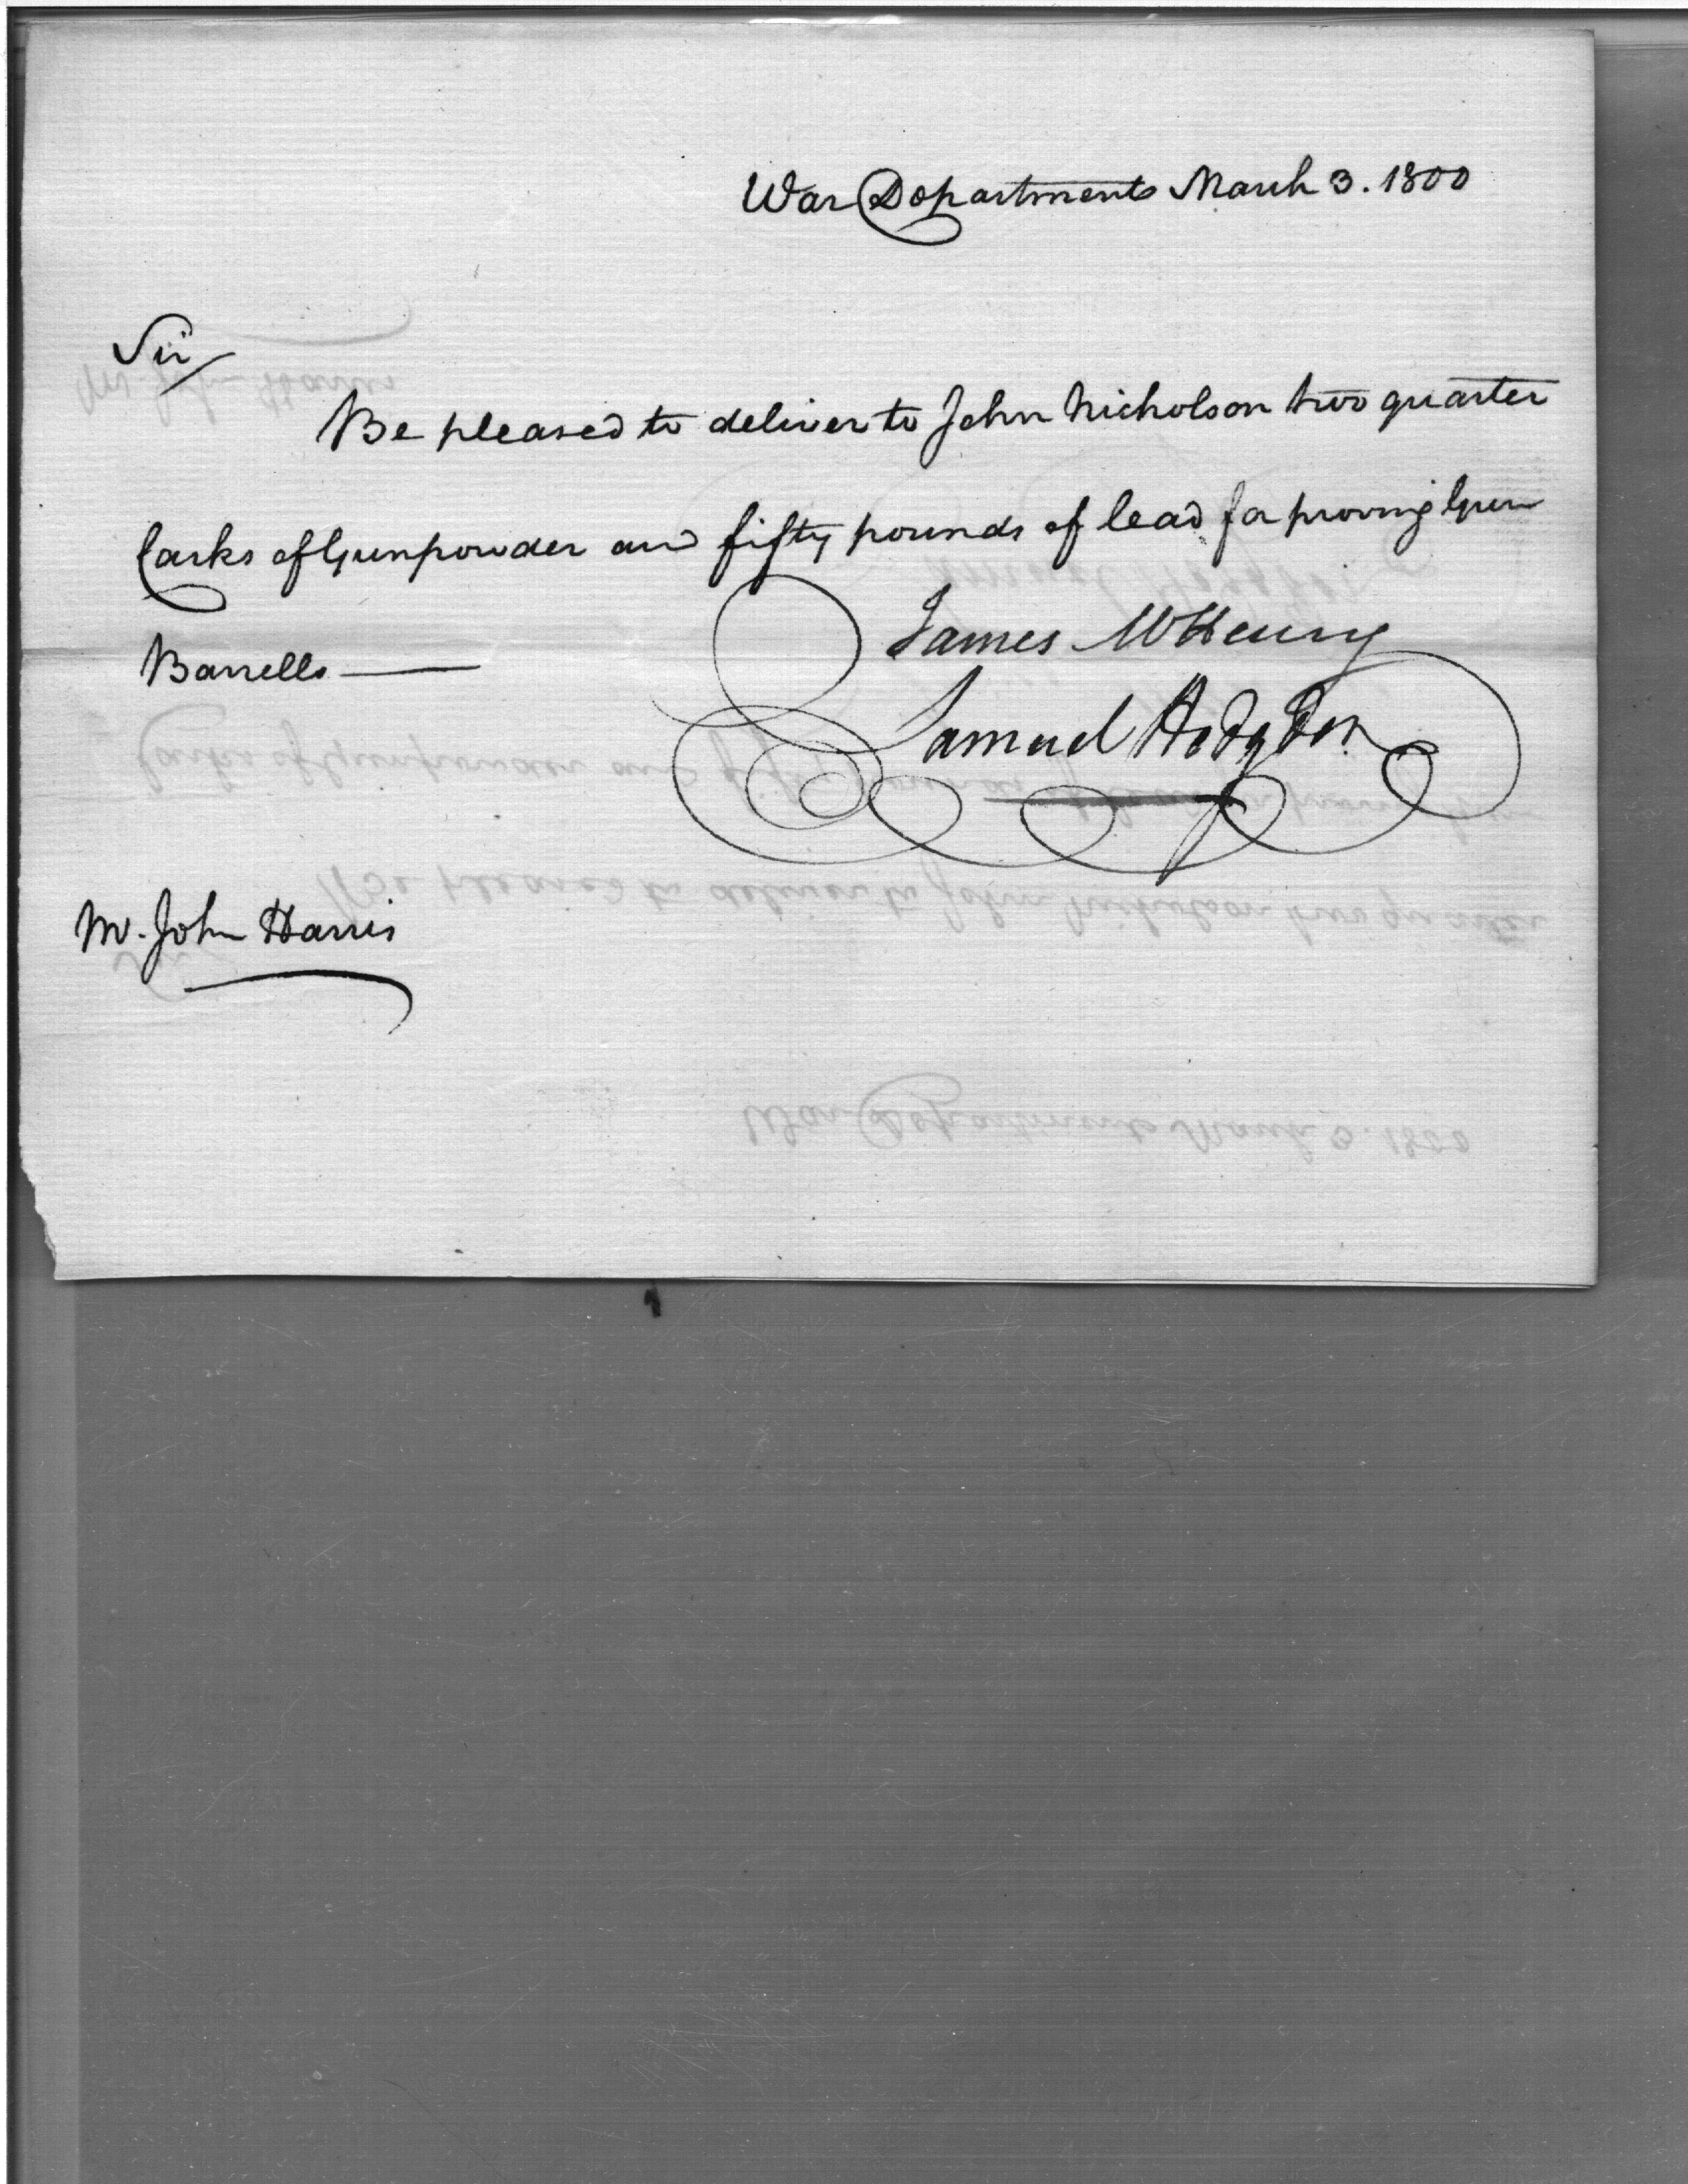 War Department March 3. 1800
Sir
Be pleased to deliver to John Nicholson two quarter
Casks of Gunpowder and fifty pounds of lead for proving Gun
Barrells
James McHenry
Samuel Hodgdon
Mr. John Harris